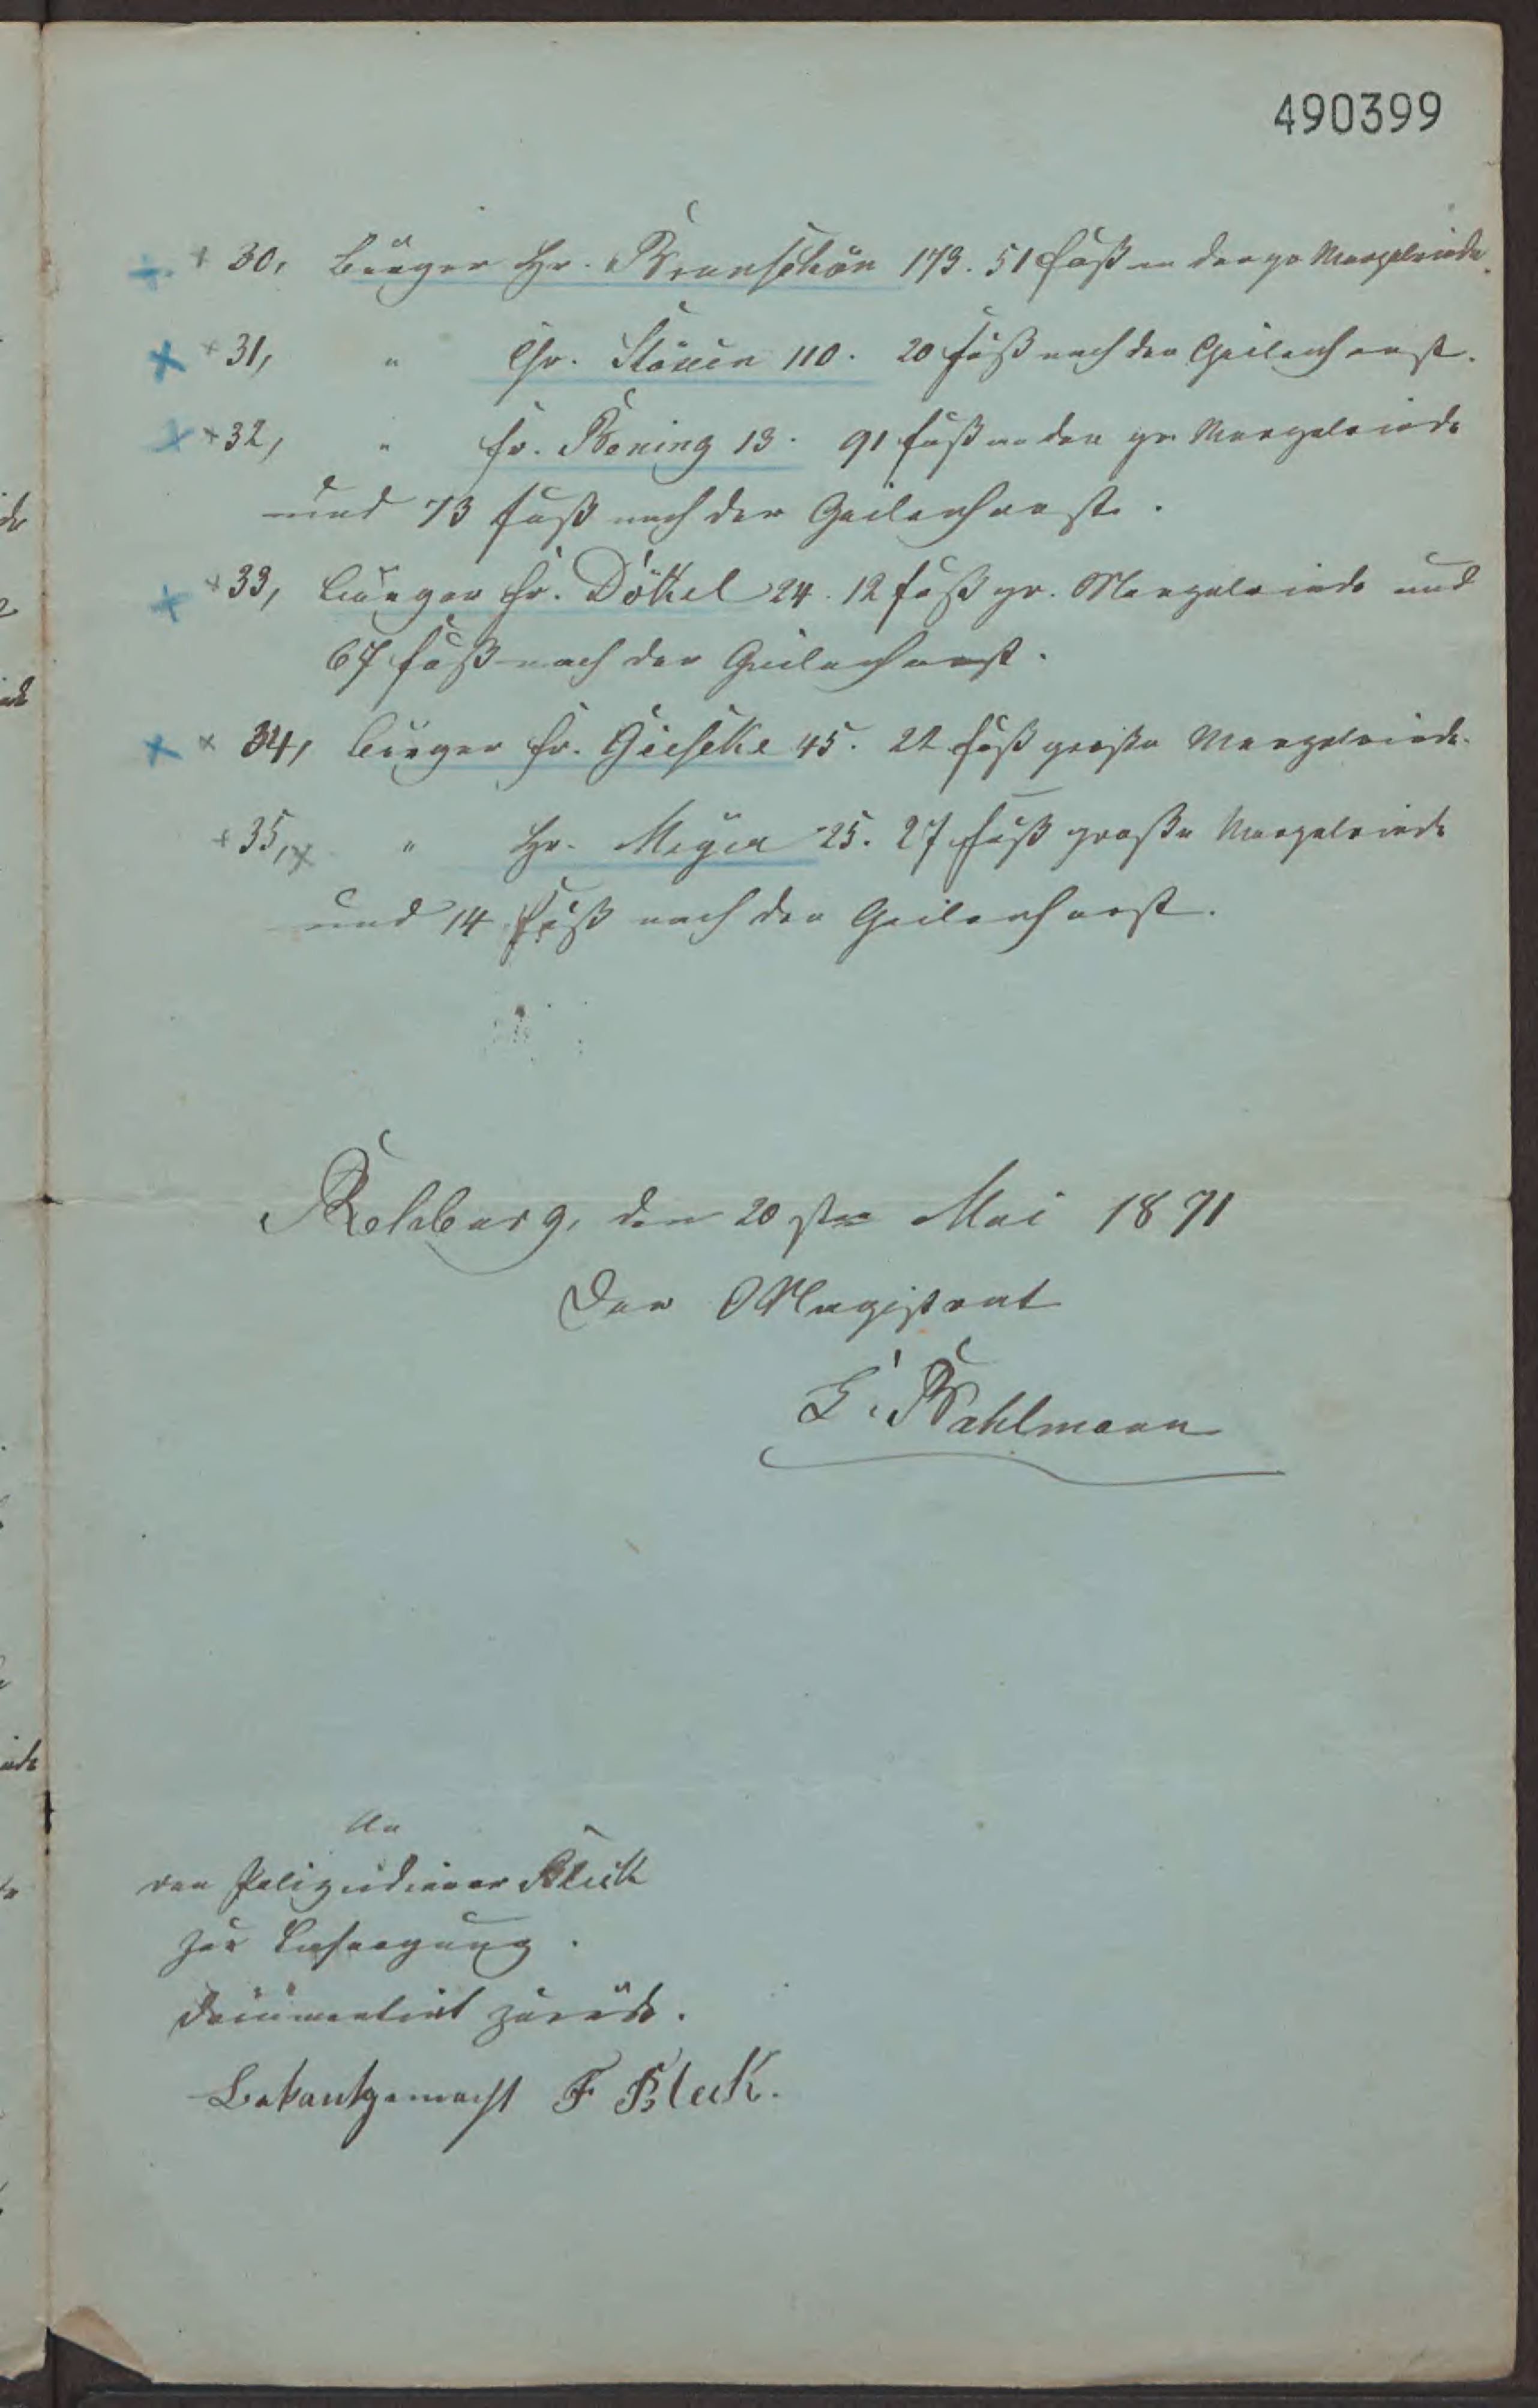 490399
+ 30, Bürger Hr. Brunschön 173. 51 Fuß an der gr Mergelriede.
+ 31, " Chr. Stöxen 110. 20 Fuß nach der Geilenhorst.
+ 32, " Fr. Bening 13. 91 Fuß an der gr. Mergelriede
und 73 Fuß nach der Geilenhorst.
+ 33, Bürger Fr. Dökel 24. 12 Fuß gr. Mergelriede und
67 Fuß nach der Geilenhorst.
+ 34, Bürger Fr. Gieseke 45. 22 Fuß große Mergelriede.
+ 35, + " Hr. Meyer 25. 27 Fuß große Mergelriede
und 14 Fuß nach der Geilenhorst.
Rehburg, den 20sten Mai 1871
Der Magistrat
Bahlmann
An
den Polizeidiener Bleck
zur Besorgung.
documentirt zurück.
Bekantgemacht F Bleck.